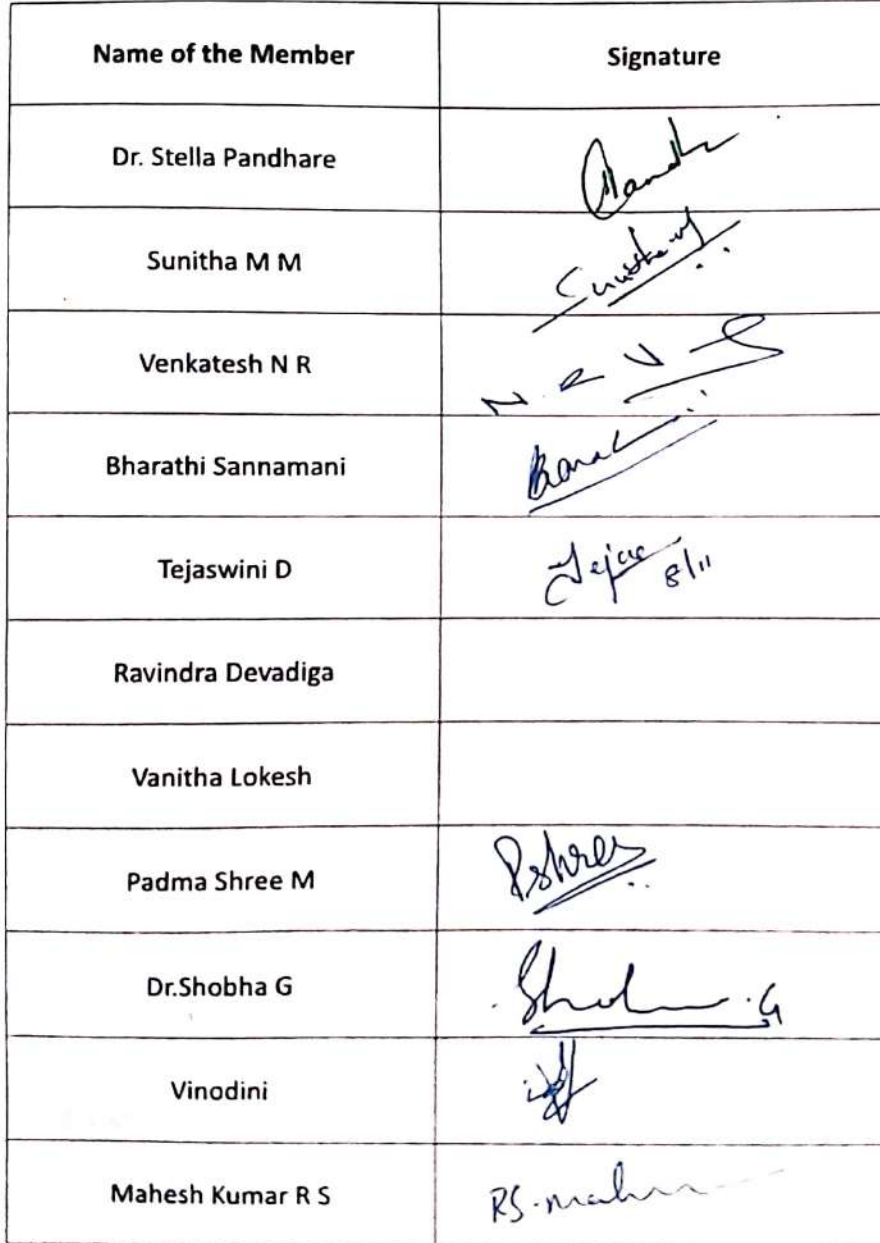 Name of the Member Signature
Dr. Stella Pandhare
Sunitha M M
Venkatesh N R N R V
Bharathi Sannamani
Tejaswini D Tejas 8/11
Ravindra Devadiga
Vanitha Lokesh
Padma Shree M Pshree
Dr.Shobha G
Vinodini
Mahesh Kumar R S